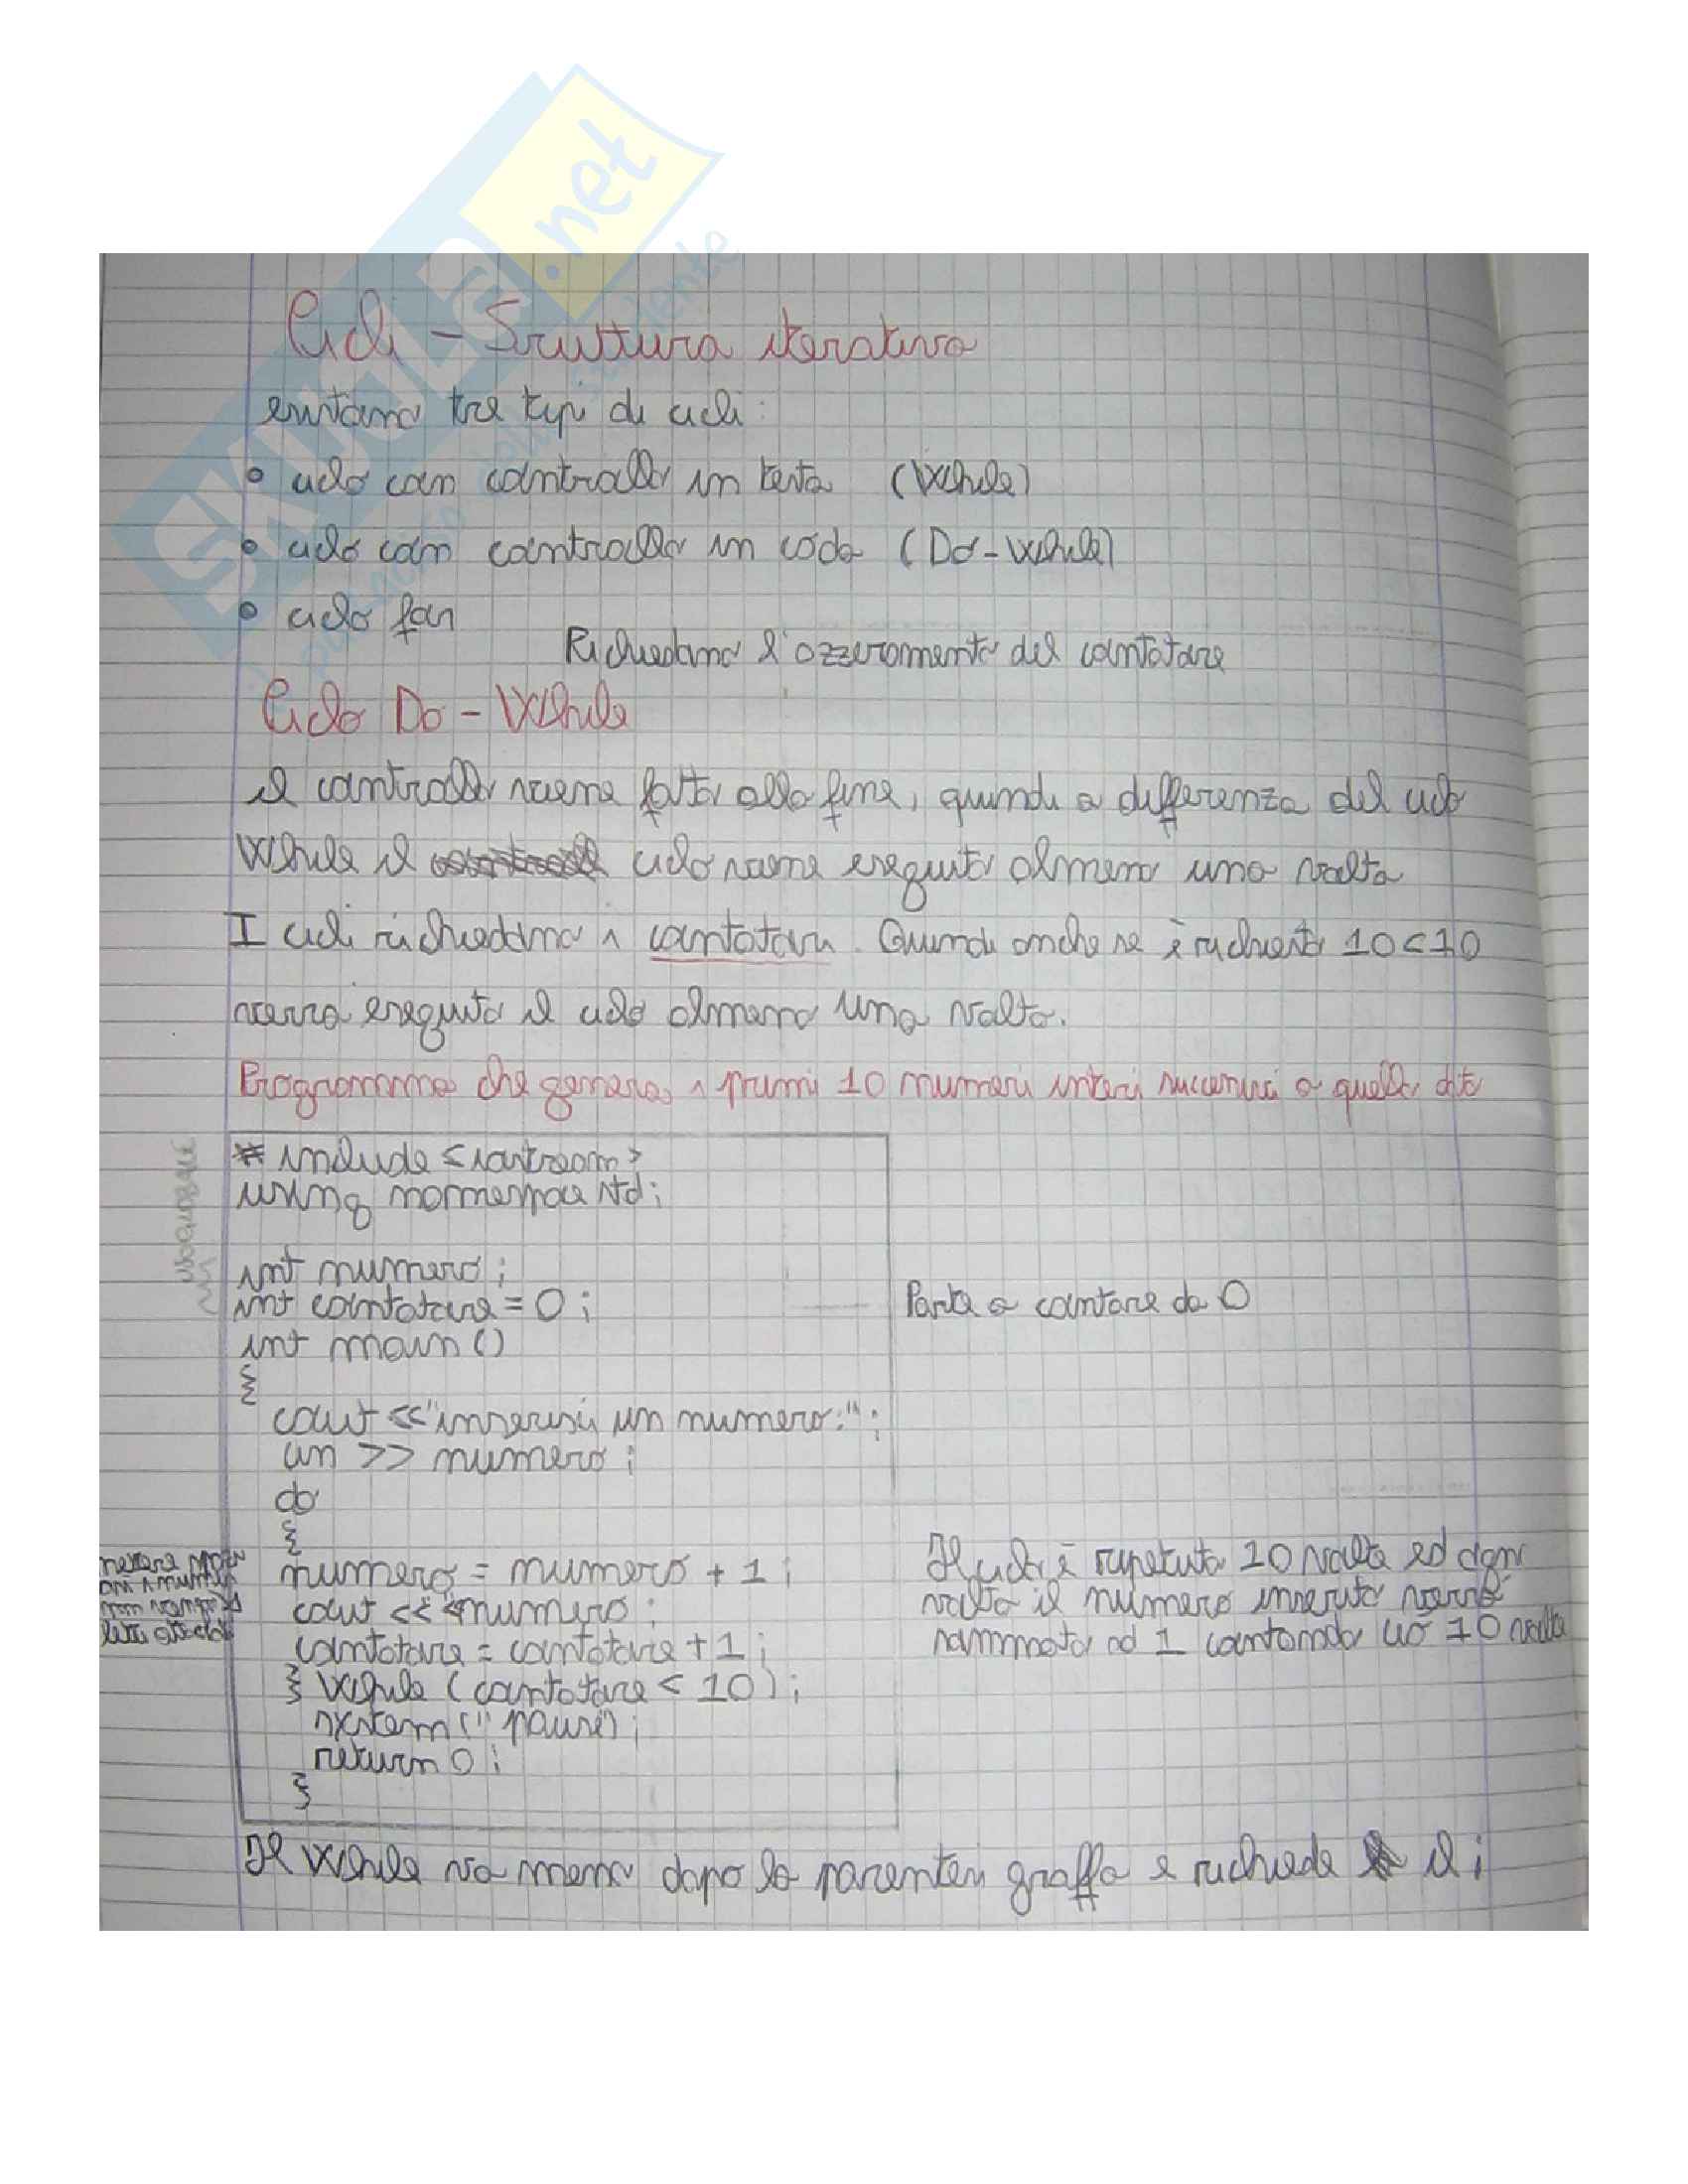 SKUOLA.net
Cicli - Struttura iterativa
esistono tre tipi di cicli:
• ciclo con controllo in testa (While)
• ciclo con controllo in coda (Do-While)
• ciclo for
Richiedono l'azzeramento del contatore
Ciclo Do - While
il controllo viene fatto alla fine, quindi a differenza del ciclo
While il ciclo viene eseguito almeno una volta
I cicli richiedono i contatori. Quindi anche se è richiesto 10<10
verrà eseguito il ciclo almeno una volta.
Programma che genera i primi 10 numeri interi successivi a quello dato
# include <iostream>
using namespace std;
int numero;
int contatore = 0;
Parte a contare da 0
int main()
{
cout <<"inserisci un numero:";
cin >> numero;
do
{
numero = numero + 1;
cout << numero;
contatore = contatore + 1;
} While (contatore < 10);
system("pause");
return 0;
}
Il ciclo è ripetuto 10 volte ed ogni
volta il numero inserito verrà
sommato ad 1 contando ciò 10 volte
Il While va messo dopo la parentesi graffa e richiede il ;